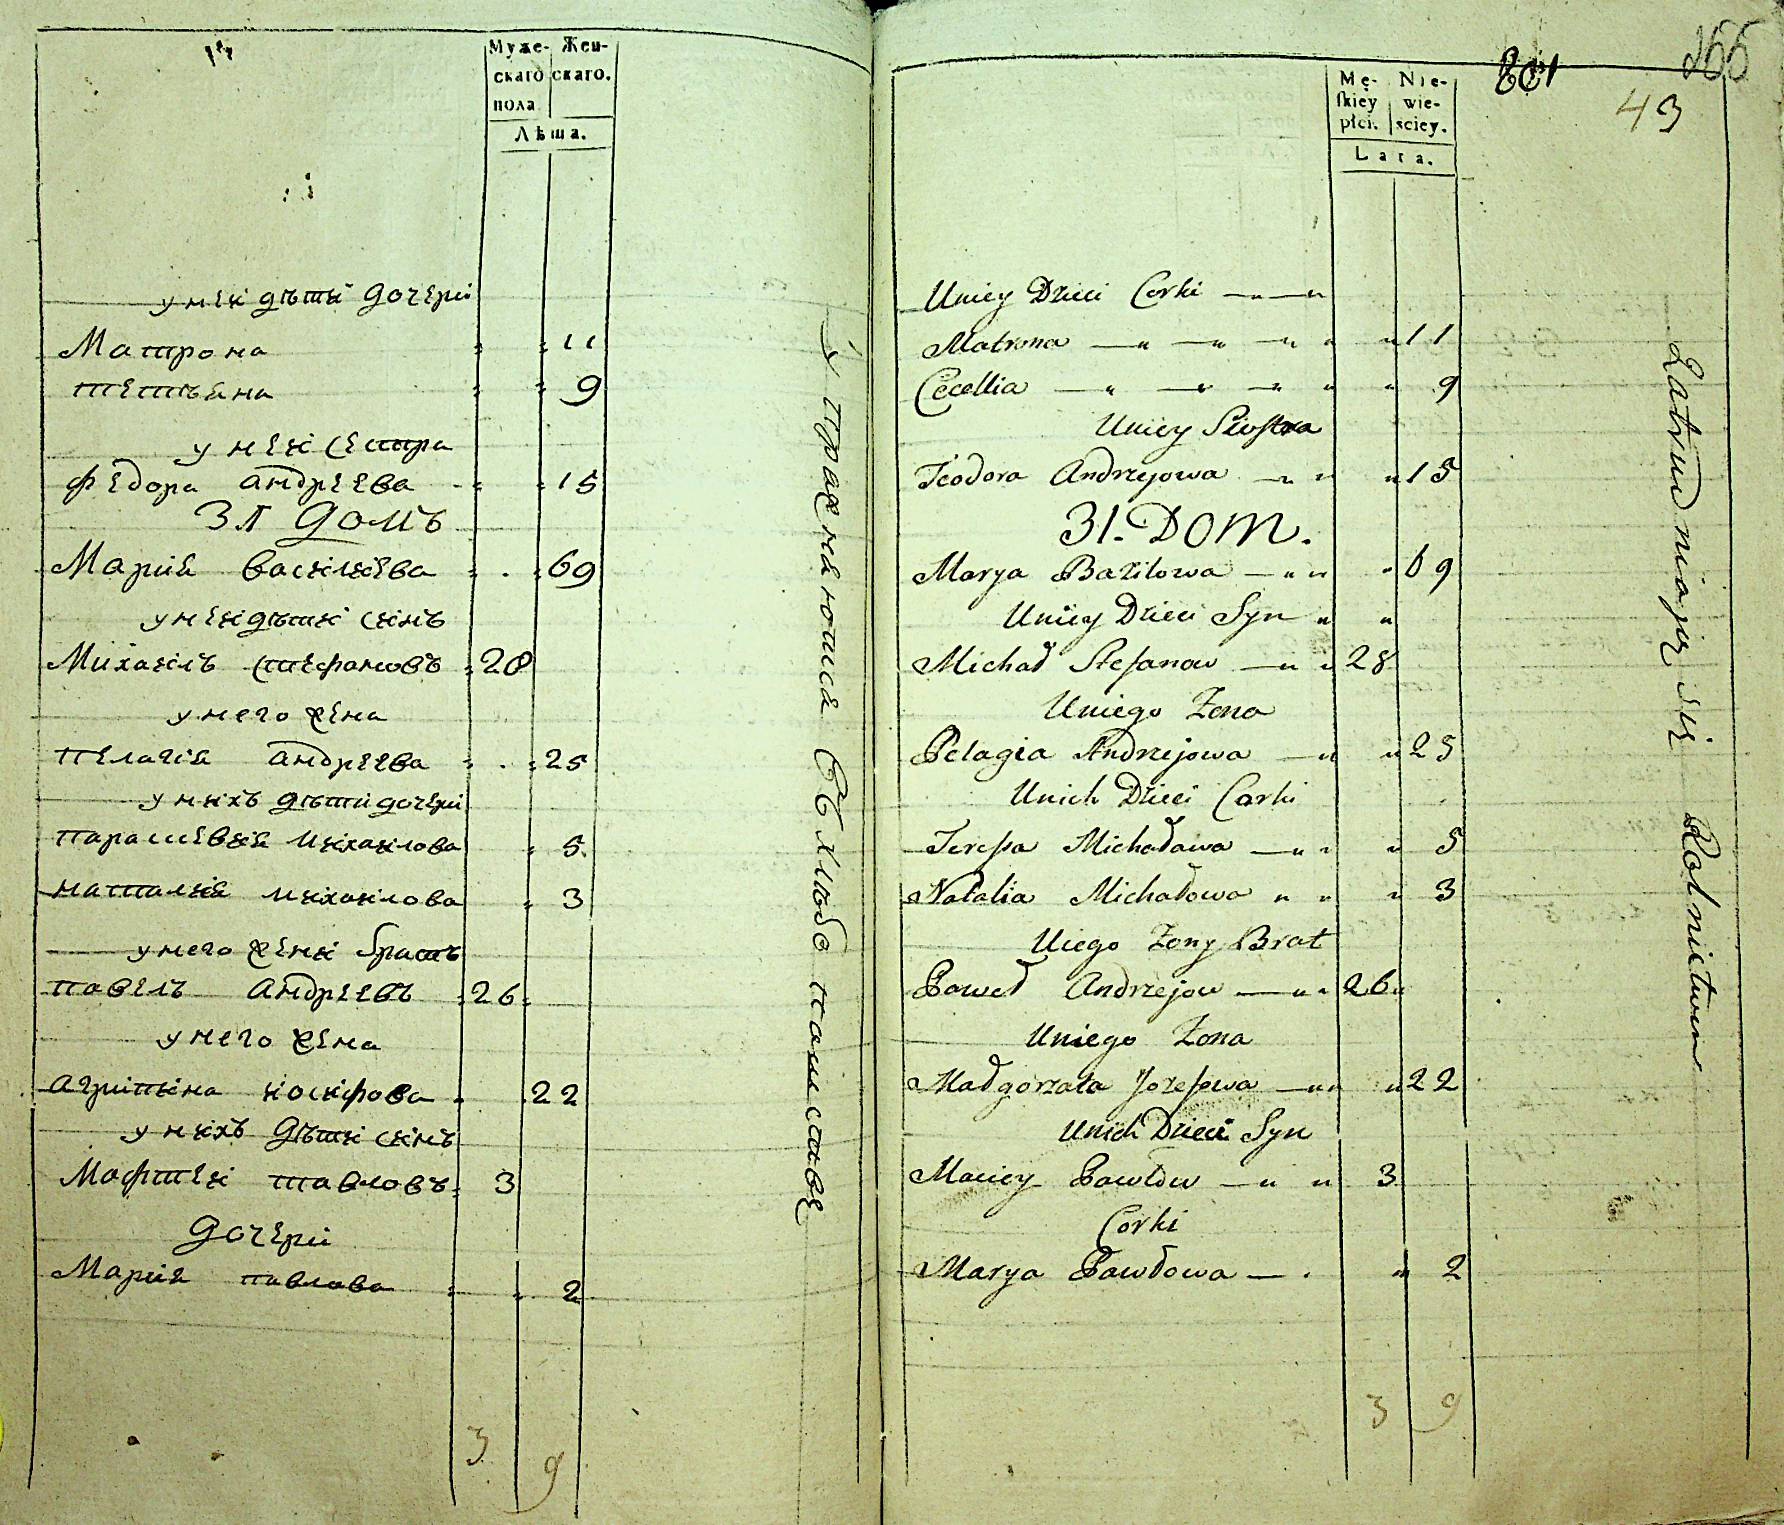 Муже-
скаго
пола
Жен-
скаго.
Лѣта.
у неи дѣти дочери
Матрона 11
тетьяна 9
у неи сестра
федора андреева 15
31 домъ
Мария василиева 69
у неи дѣти синъ
Михаилъ стефановъ 28
у него жена
пелагия андреева 25
у нихъ дѣти дочери
парасшевия михаилова 5
наталия михаилова 3
у него жени братъ
павелъ андреевъ 26
у него жена
агрипина иосифова 22
у нихъ дѣти синъ
Мафтеи павловъ 3
дочери
Мария павлова 2
3 9
упражнаютца
801
255
43
Mę-
skiey
płci.
Nie-
wie-
sciey.
Lata.
Uniey Dzieci Corki
Matrona 11
Cecellia 9
Uniey Siostra
Teodora Andrzejowa 15
31. DOM.
Marya Bazilowa 69
Uniey Dzieci Syn
Michał Stefanow 28
Uniego Zona
Pelagia Andrzejowa 25
Unich Dzieci Corki
Teressa Michałowa 5
Natalia Michałowa 3
Uiego Zony Brat
Paweł Andrzejow 26
Uniego Zona
Małgorzata Jozefowa 22
Unich Dzieci Syn
Maciey Pawłow 3
Corki
Marya Pawłowa 2
3 9
Zatrudniają się Rolnictwem